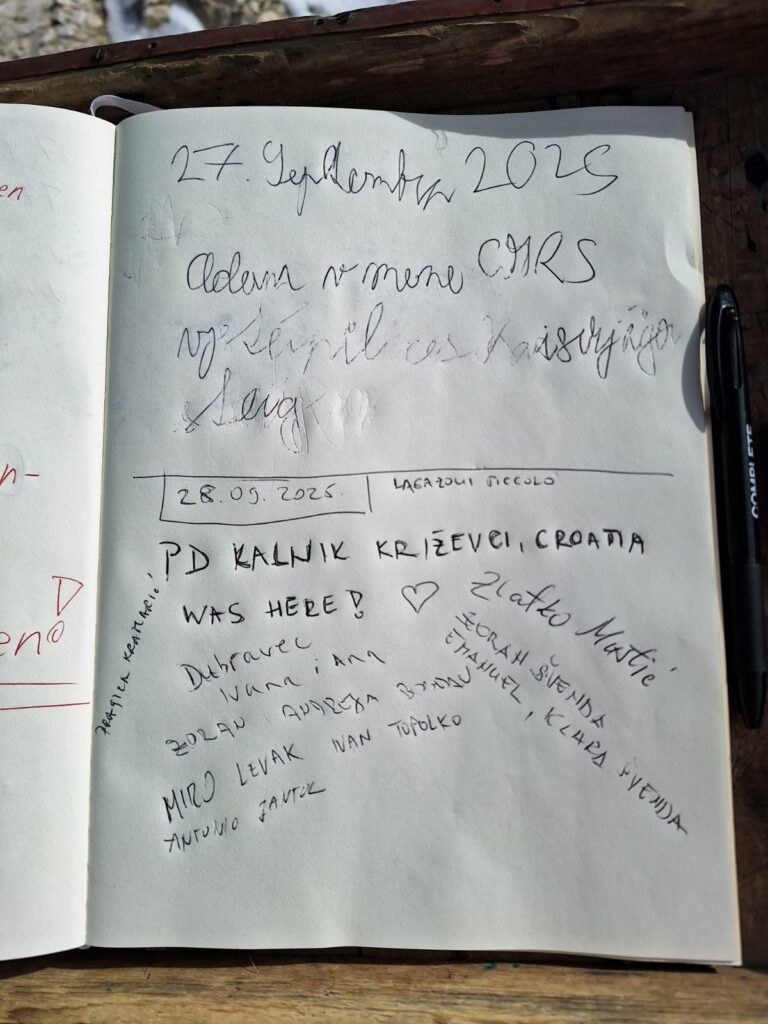 en
n-
en
27. September 2025
Adam v mene CMRS
vystúpil cez Kaiserjäger
steig
28.09.2025. LAGAZOUI PICCOLO
PD KALNIK KRIŽEVCI, CROATIA
WAS HERE! ♡
Zlatko Mastić
ZORAN ŠVENDA
EMANUEL, KLARA ŠVENDA
Dubravec
Ivana i Ana
ZORAN ANDREJA
MIRO LEVAK IVAN TOPOLKO
ANTONIO JANTOL
COMPLETE